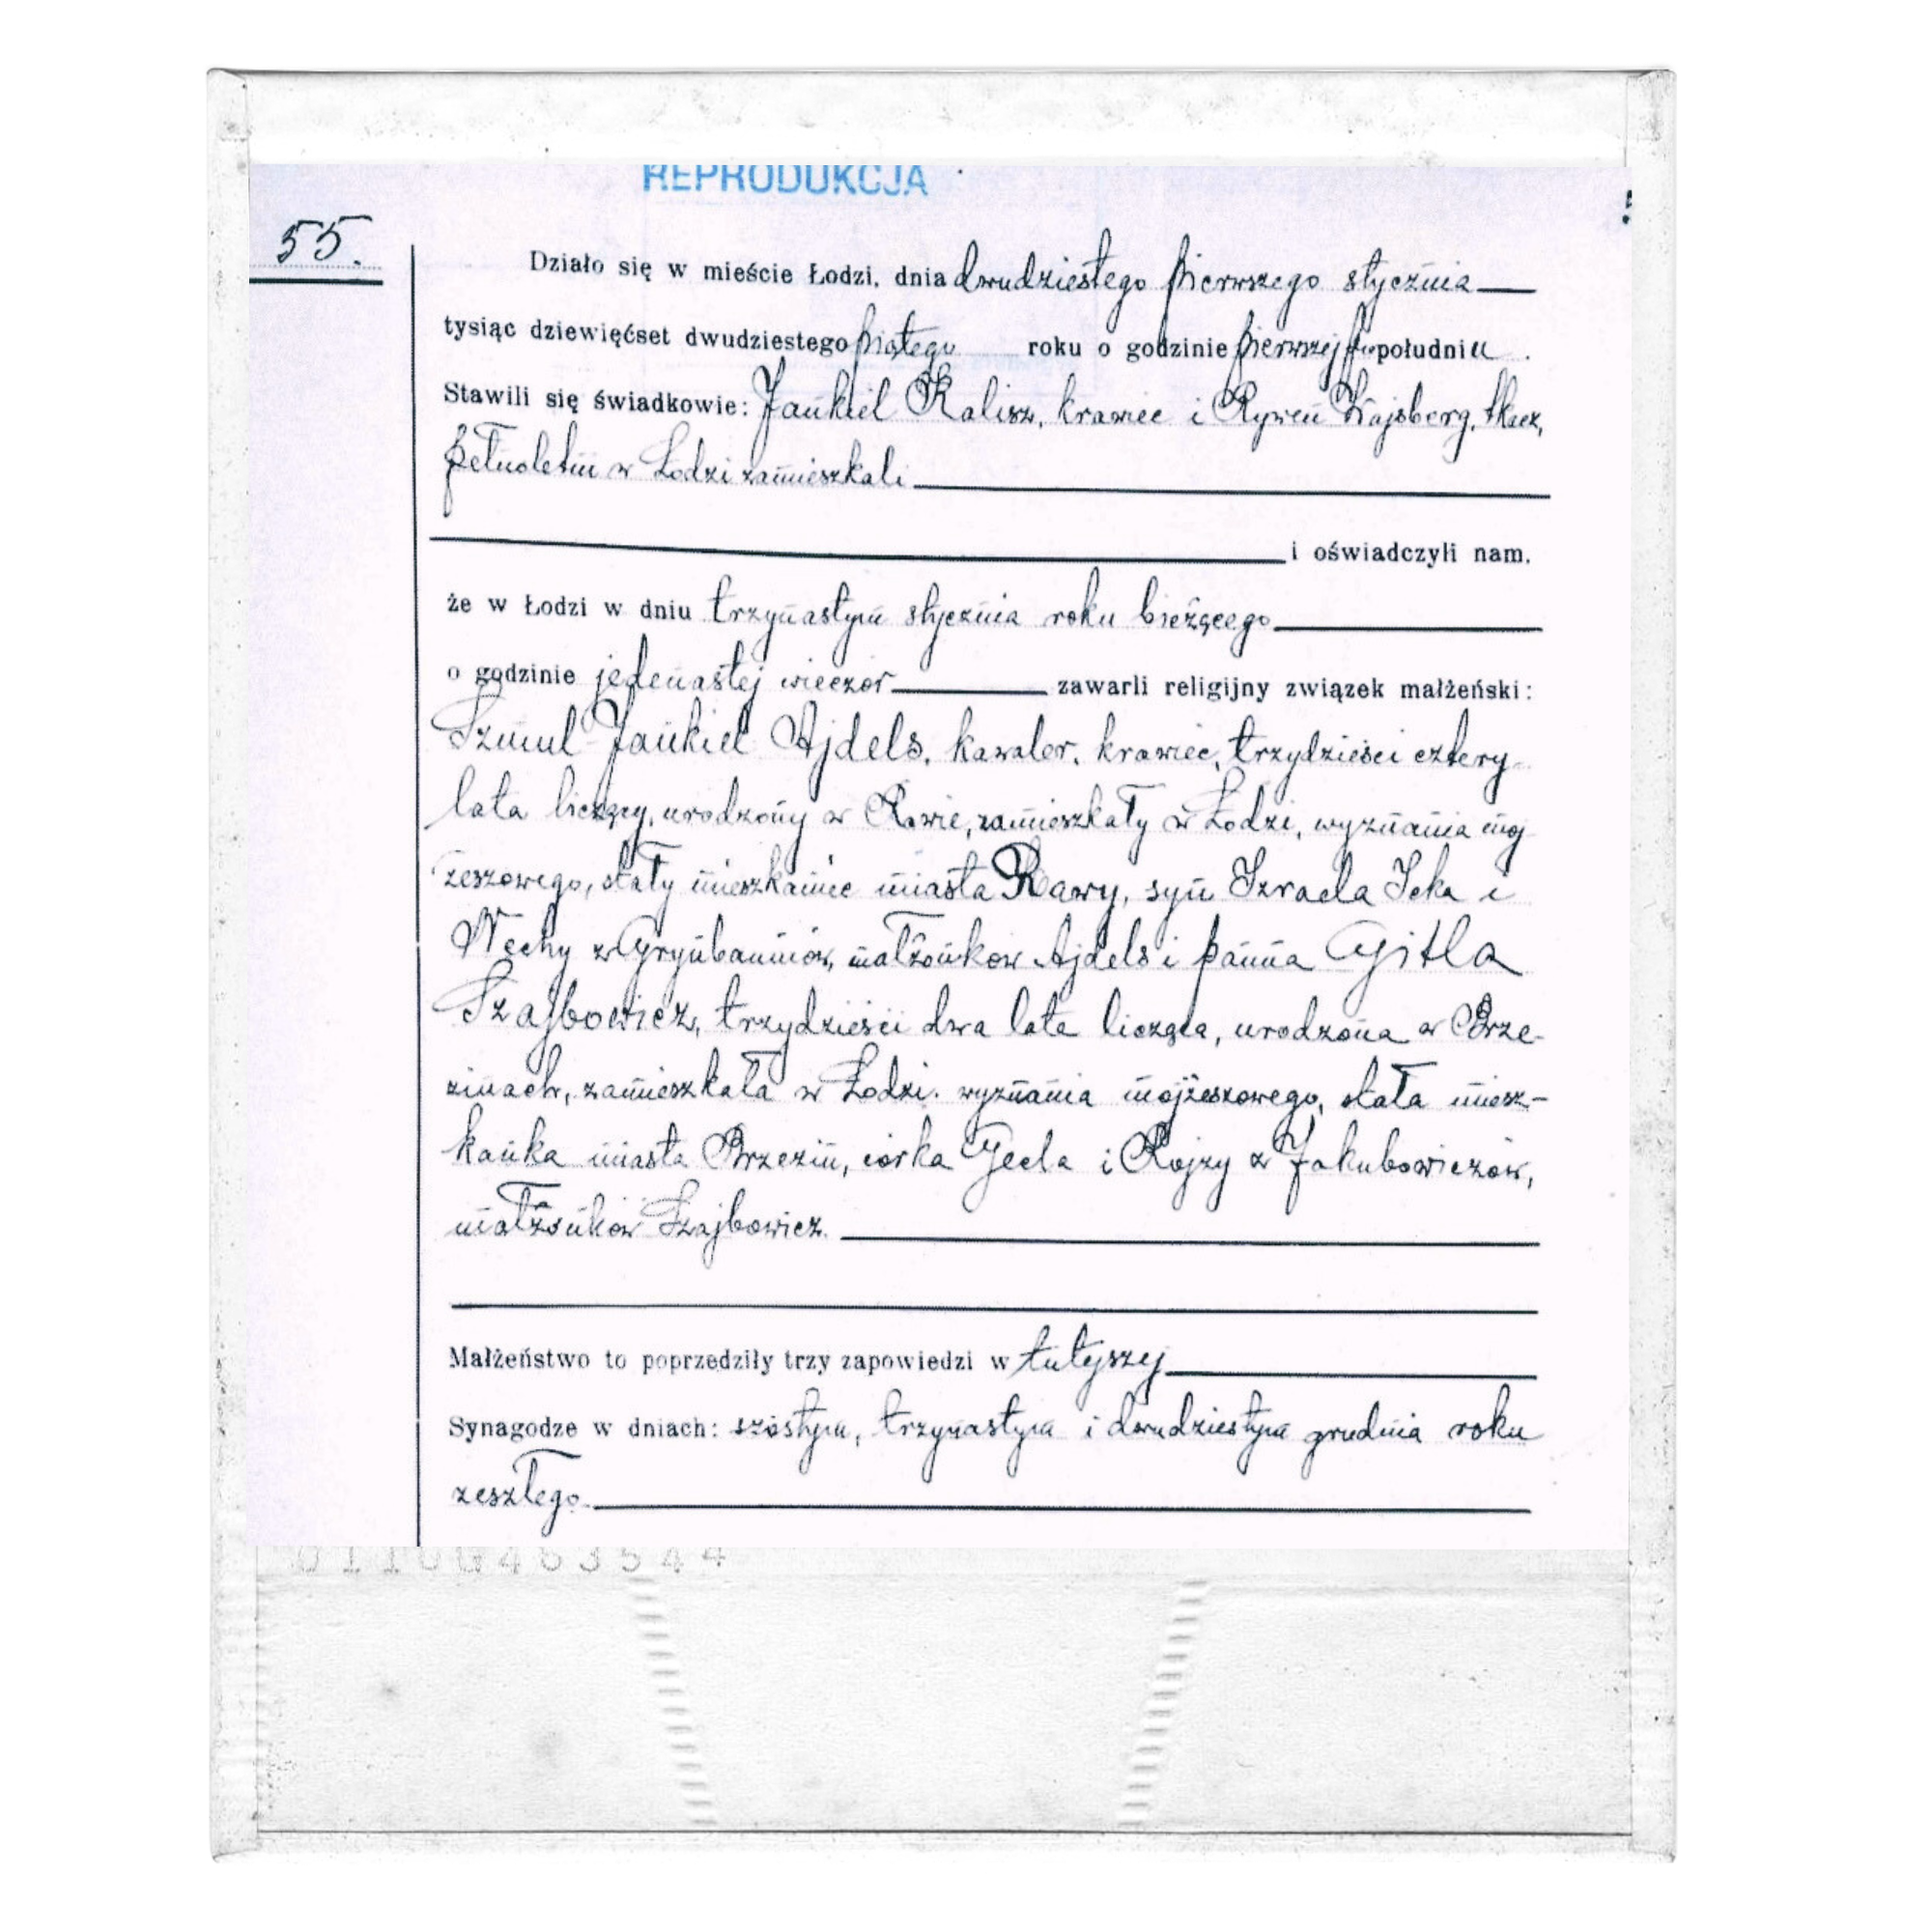 REPRODUKCJA
55.
Działo się w mieście Łodzi, dnia dwudziestego pierwszego stycznia
tysiąc dziewięćset dwudziestego piątego roku o godzinie pierwszej popołudniu.
Stawili się świadkowie: Jankiel Kalisz, krawiec i Rywen Wajsberg, tkacz,
pełnoletni w Łodzi zamieszkali
i oświadczyli nam,
że w Łodzi w dniu trzynastym stycznia roku bieżącego
o godzinie jedenastej wieczór zawarli religijny związek małżeński:
Szmul-Jankiel Ajdels, kawaler, krawiec, trzydzieści cztery
lata liczący, urodzony w Rawie, zamieszkały w Łodzi, wyznania moj-
żeszowego, stały mieszkaniec miasta Rawy, syn Izraela Icka i
Nechy z Grynbaumów, małżonków Ajdels i panna Gitla
Szajbowicz, trzydzieści dwa lata licząca, urodzona w Brze-
zinach, zamieszkała w Łodzi. wyznania mojżeszowego, stała miesz-
kanka miasta Brzezin, córka Gecla i Rojzy z Jakubowiczów,
małżonków Szajbowicz.
Małżeństwo to poprzedziły trzy zapowiedzi w tutejszej
Synagodze w dniach: szóstym, trzynastym i dwudziestym grudnia roku
zeszłego.
01100463544